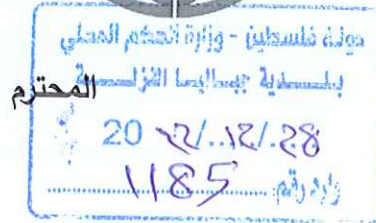 دولة فلسطين - وزارة الحكم المحلي
بلدية جباليا النزلة
المحترم
20 22/..12/.28
وارد رقم: 1185